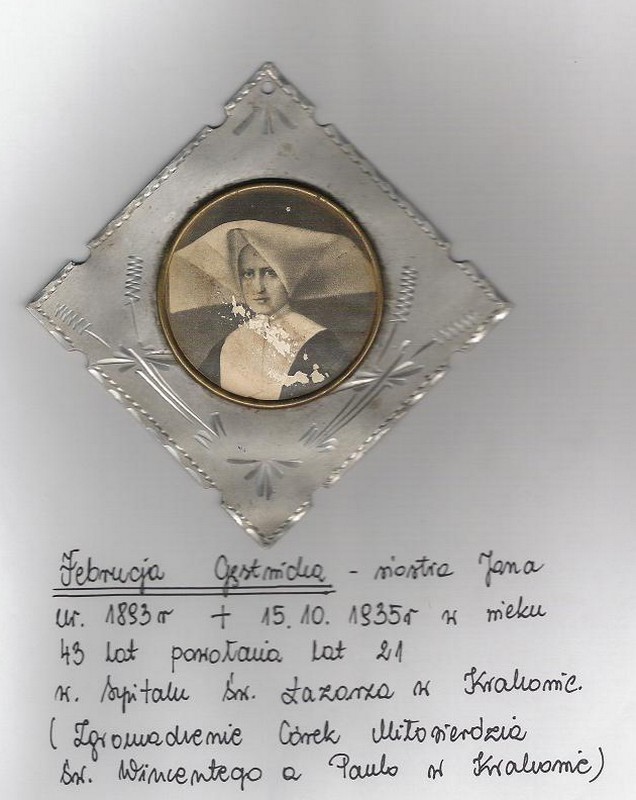 Februcja Gęstwicka - siostra Jana
ur. 1893r + 15.10.1935r w wieku
43 lat powołania lat 21
w. Szpitalu Św. Łazarza w Krakowie.
(Zgromadzenie Córek Miłosierdzia
Św. Wincentego a Paulo w Krakowie)